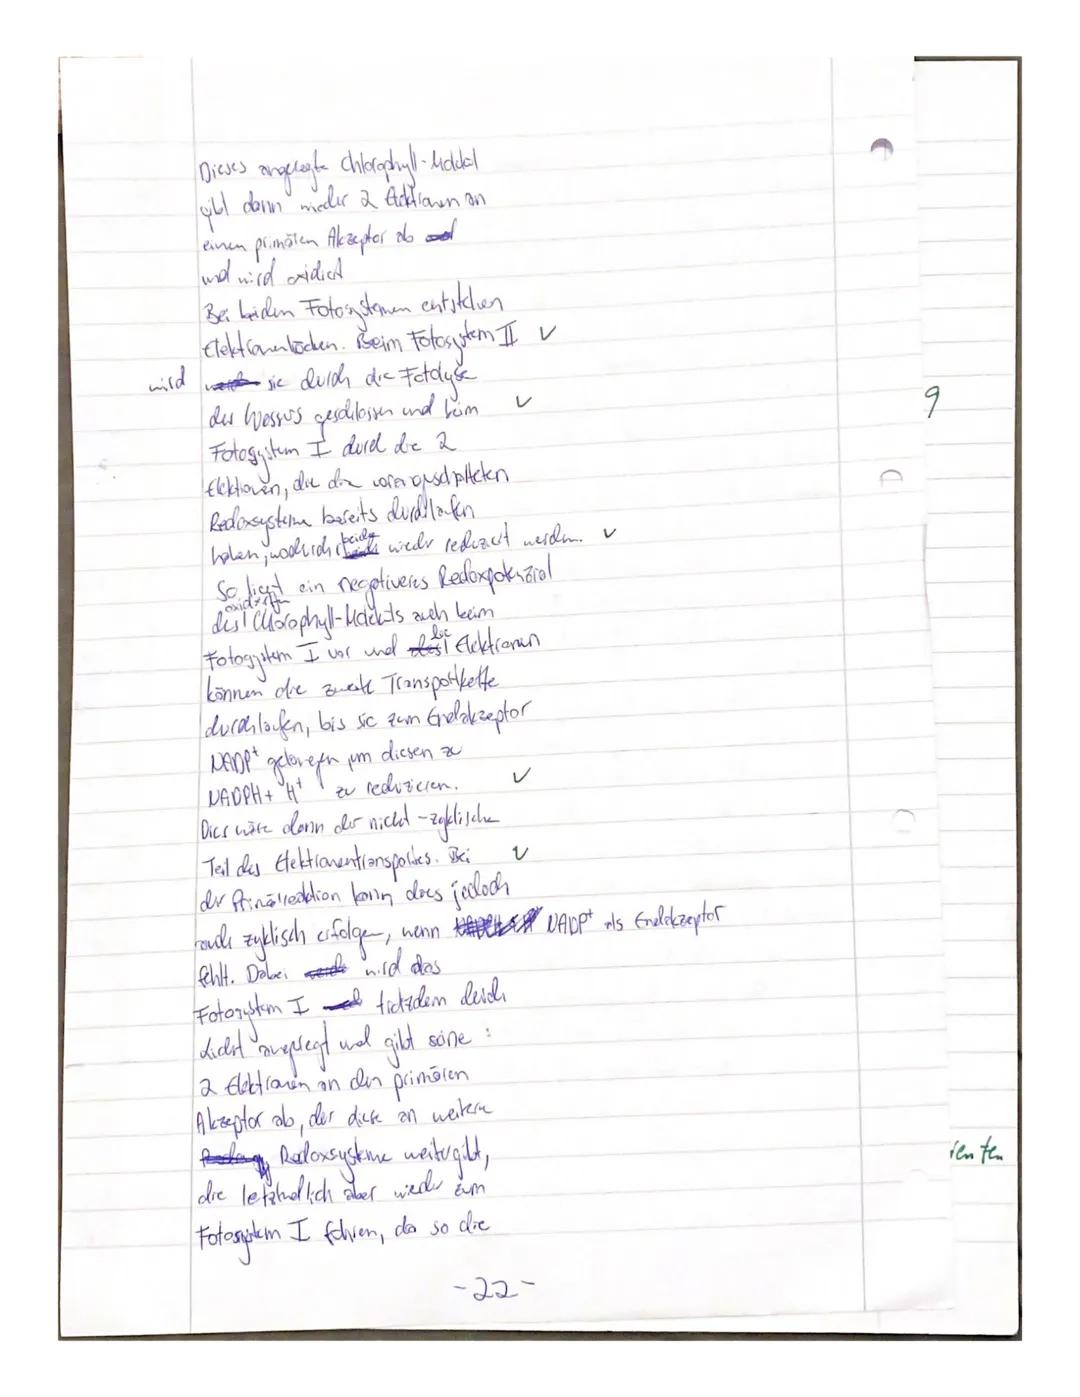 Dieses angeregte Chlorophyll-Molekül
gibt dann wieder 2 Elektronen an
einen primären Akzeptor ab
und wird oxidiert
Bei beiden Fotosystemen entstehen
Elektronenlöcken. Beim Fotosystem II ✓
wird sie durch die Fotolyse
des Wassers geschlossen und beim ✓
Fotosystem I durch die 2
Elektronen, die die vorangeschalteten
Redoxsysteme bereits durchlaufen
haben, wodurch beide wieder reduziert werden. ✓
So liegt ein negativeres Redoxpotenzial
des oxidierten Chlorophyll-Moleküls auch beim
Fotosystem I vor und die Elektronen
können die zweite Transportkette
durchlaufen, bis sie zum Endakzeptor
NADP⁺ gelangen um diesen zu
NADPH + H⁺ zu reduzieren. ✓
Dies wäre dann der nicht-zyklische
Teil des Elektronentransportes. Bei ✓
der Primärreaktion kann dies jedoch
auch zyklisch erfolgen, wenn NADP⁺ als Endakzeptor
fehlt. Dabei wird das
Fotosystem I trotzdem durch
Licht angeregt und gibt seine
2 Elektronen an den primären
Akzeptor ab, der diese an weitere
Redoxsysteme weitergibt,
die letztendlich aber wieder zum
Fotosystem I führen, da so die
-22-
9